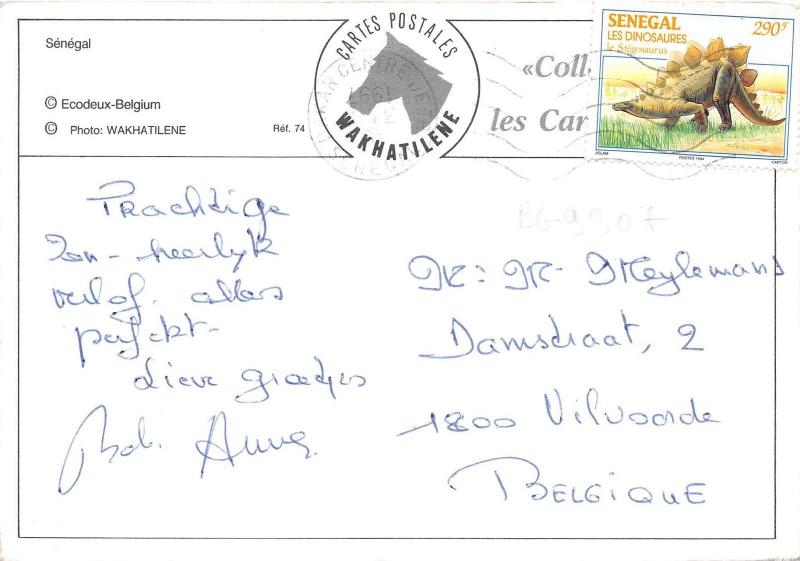 Sénégal
© Ecodeux-Belgium
© Photo: WAKHATILENE
Réf. 74
CARTES POSTALES
WAKHATILENE
«Coll
les Car
SENEGAL
290F
LES DINOSAURES
le Stégosaurus
ASLAM
POSTES 1994
CARTOR
1997
BG-9307
Prachtige
Zon - heerlyk
verlof. alles
perfekt -
Lieve groetjes
Bob. Anna
Mr: Mr- Meylemans
Damstraat, 2
1800 Vilvoorde
BELGIQUE